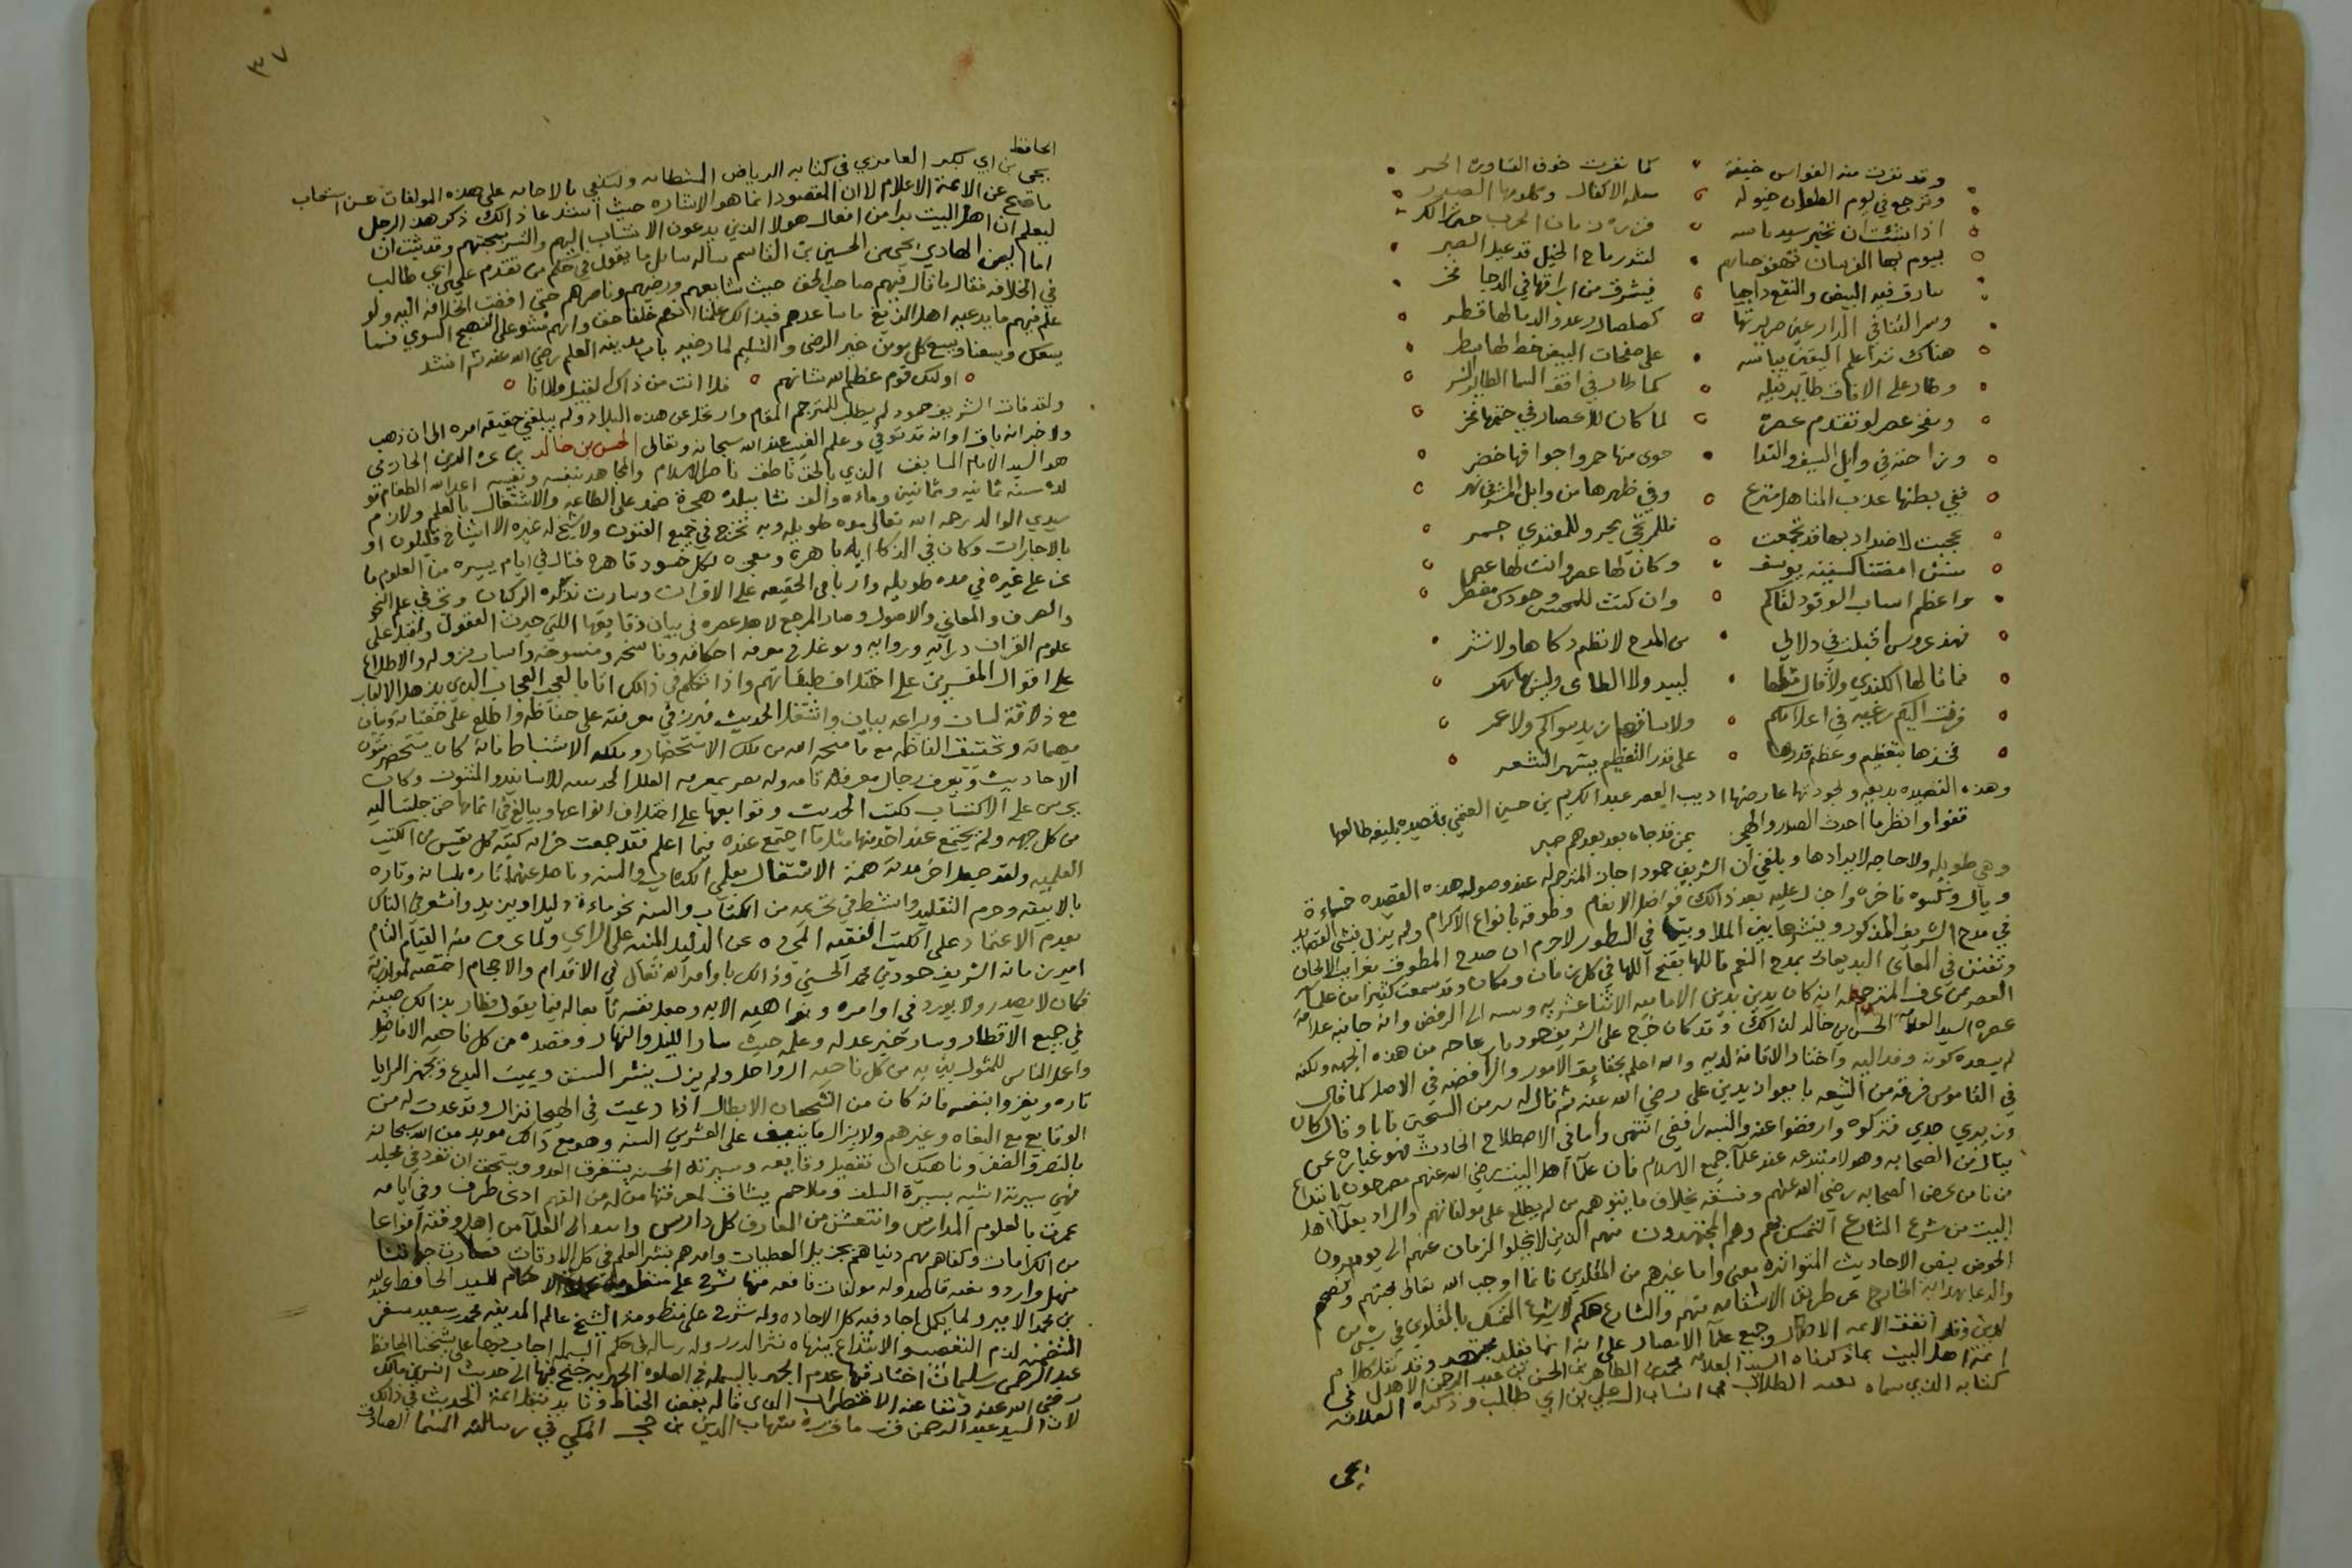 وقد نفرت منه الفوارس خيفة كما نفرت خوف القساورة الحمر
وترجع في يوم الطعان خيوله الاكفال وكلومها الصدور
اذا شئت ان تخبر سيد باسه الحرب
بيوم بها الفرسان رماح الخيل قد
فيه البيض والنقع داجيا فيشرق من ابراقها في الدجا
وسمر القنا في رعد والدما لها قطر
هناك ترا علم اليقين بباسه على صفحات البيض خط لها سطر
وطار على الافاق طاير كما طار في افق السما الطاير النسر
ويفخر عصر لو تقدم عصره لما كان للاعصار في فخر
وراحته في وابل السيف والندا حوى منها حمر واجوافها خضر
ففي بطنها عذب المناهل مترع وفي ظهرها من وابل
عجبت لاضداد بها قد تجمعت فللمرتجي بحر وللمعتدي جمر
كسفينة يوسف وكان لها عصر وانت لها عصر
واعظم اسباب الوفود لقاكم وان كنت
فهذي عروس اقبلت في دلالها من المدح لا نظم حكاها ولا نثر
فما قالها الكندي ولا قال مثلها لبيد ولا الطاى
زفت اليكم رغبة في سواكم ولا عمر
فخذها بتعظيم وعظم قدرها على قدر التعظيم يشتهر الشعر
وهذه القصيده بديعه ولجودتها عارضها اديب العصر عبد الكريم بن حسين العتمي بقصيده بليغه طالعها
قفوا وانظروا احدث الصدر والهجر بمن قد جاه بعد بعدهم صبر
وهي طويله ولا حاجه لايرادها وبلغني ان الشريف حمود اجاز المترجم له عند وصول هذه القصيده خمسماءة
ريال وكسوه فاخره واجزل عليه بعد ذالك فواضل الانعام وطوقه بانواع الاكرام ولم يزل ينشى القصايد
في مدح الشريف المذكور وينشرها بين الملا في السطور لاجرم ان صدح المطوق بغرايب الالحان
وتفنن في المعاني البديعات بمدح النعم فاللها تفتح اللها في كل زمان ومكان وقد سمعت كثيرا من علما
العصر ممن عرف المترجم له انه كان يدين بدين الاماميه الاثنا عشريه وينسبه الى الرفض وانه جانبه علامة
عصره السيد العلامه الحسن بن خالد لذالك وقد كان خرج على الشريف حمود من هذه الجهه ولكنه
لم يسعده كونه وفد اليه واختار الاقامة لديه والله اعلم بحقايق الامور والرافضه في الاصل كما قال
في القاموس فرقة من الشيعه بايعوا زيد بن علي رضي الله عنه ثم قالوا له تبرا من الشيخين فابا وقال كانا
وزيري جدي فتركوه وارفضوا عنه والنسبه رافضي انتهى واما في الاصطلاح الحادث فهو عباره عمن
ينال من الصحابه وهولا مبتدعه عند علما جميع الاسلام فان علما اهل البيت رضي الله عنهم مصرحون بابتداع
من نال من عرض الصحابه رضي الله عنهم وفسقه بخلاف ما يتوهم من لم يطلع على مولفاتهم والمراد بعلما اهل
البيت من شرع الشارع التمسك بهم وهم المجتهدون منهم الذين لا يخلوا الزمان عنهم الى يوم يردون
الحوض بنص الاحاديث المتواتره معنى واما غيرهم من المقلدين فانما اوجب الله تعالى محبتهم ونصحهم
والدعا بهداية الخارج عن طريق الاستقامه منهم والشارع حكم لا يشرع التمسك بالمقلدين في شيء من
الدين وقد اتفقت الايمه الاطهار وجميع علما الامصار على انه انما تقلد مجتهد وقد نقل كلام
ايمة اهل البيت بما ذكرناه السيد العلامه محمد بن الطاهر بن الحسن بن عبد الرحمن الاهدل في
كتابه الذي سماه بغيه الطلاب في انساب ال علي بن ابي طالب وذكره العلامه
يحى
٣٧
الحافظ
يحى بن ابي بكر العامري في كتابه الرياض المستطابه ولنكتفي بالاحاله على هذه المولفات عن استيعاب
ما صح عن الايمة الاعلام لان المقصود انما هو الاشاره حيث استدعا ذالك ذكر هذا الرجل
ليعلم ان اهل البيت برا من افعال هولا الذين يدعون الانتساب اليهم والتستر بمحبتهم وقد ثبت ان
امام اليمن الهادي يحيى بن الحسين بن القاسم ساله سائل ما يقول في حكم من تقدم على علي بن ابي طالب
في الخلافه فقال ما قال فيهم صاحب الحق حيث شايعهم ورضيهم وناصرهم حتى افضت الخلافة اليه ولو
علم فيهم ما يدعيه اهل الزيغ ما ساعدهم فبذالك علمنا انهم خلفا حق وانهم مشو على النهج السوي فما
يسعك ويسعنا ويسع كل مومن غير الرضى والتسليم لما رضيه باب مدينه العلم رضي الله عنه ثم انشد
اولئك قوم عظم الله شانهم فلا انت من ذاك القبيل ولا انا
ولقد فات الشريف حمود لم يطلب للمترجم المقام وارتحل عن هذه البلاد ولم يبلغني حقيقة امره الى اين ذهب
ولا خبر انه باق او انه قد توفي وعلم الغيب عند الله سبحانه وتعالى الحسن بن خالد بن عز الدين الحازمي
هو السيد الامام السابق الذي بالحق ناطق ناصر الاسلام والمجاهد بنفسه ونفيسه اعداء الله الطغام مو
لده سنة ثمانيه وثمانين وماءه والف نشا ببلده هجرة ضمد على الطاعه والاشتغال بالعلم ولازم
سيدي الوالد رحمه الله تعالى مده طويله وبه تخرج في جميع الفنون ولا شيخ له غيره الا اشياخ قليلون او
بالاجازات وكان في الذكا ايه باهرة ومعجزه لكل حسود قاهره فنال في ايام يسيره من العلوم ما
عز على غيره في مده طويله واربا في الحقيقه على الاقران وسارت بذكره الركبان وتحقق في علم النحو
والصرف والمعاني والاصول وصار المرجع لاهل عصره في بيان دقايقها اللتي حيرت العقول واقبل على
علوم القران درايه وروايه وتوغل في معرفة احكامه وناسخه ومنسوخه واسباب نزوله والاطلاع
على اقوال المفسرين على اختلاف طبقاتهم واذا تكلم في ذالك اتا بالعجب العجاب الذي يذهل الالباب
مع ذلاقة لسان وبراعه بيان واشتغل الحديث فبرز في معرفته على حفاظه واطلع على خفياته وبيان
مبهماته وتحقيق الفاظه مع ما منحه الله من ملكه الاستحضار وملكه الاستنباط فانه كان يستحضر متون
الاحاديث ويعرف رجال معرفة تامه وله بصر بمعرفه العلل الحديثيه للاسانيد والمتون وكان
يحرص على الاكتساب لكتب الحديث وتوابعها على اختلاف انواعها ويبالغ في اثمانها حتى جلبت اليه
من كل جهه ولم يجتمع عند احد منها مثل ما اجتمع عنده فيما اعلم فقد جمعت خزانه كتبه كل نفيس من الكتب
العلميه ولقد جعل اخر مدته همة الاشتغال بعلمي الكتاب والسنه وناضل عنهما تاره بلسانه وتاره
بالابيقه وحرم التقليد وانشط في تحريمه من الكتاب والسنه نحو ماءة دليلا ويزيد وانشر في الناس
بعدم الاعتماد على الكتب الفقهيه المجرده عن الدليل المبنيه على الراي ولما عرف منه القيام التام
امير زمانه الشريف حمود بن محمد الحسني وذالك باوامر الله تعالى في الاقدام والاحجام اختصه لموازرته
فكان لا يصدر ولا يورد في اوامره ونواهيه الا به وجعل نفسه تابعا له فيما يقول فطار بذالك صيته
في جميع الاقطار وسار خبر عدله وعلمه حيث سار الليل والنهار وقصده من كل ناحيه الافاضل
واعمل الناس للمثول بين يديه من كل ناحيه الرواحل ولم يزل ينشر السنن ويميت البدع ويجهز السرايا
تاره ويغزوا بنفسه فانه كان من الشجعان الابطال اذا دعيت في الهيجا نزال وقد عدت له من
الوقايع مع البغاه وغيرهم ولا يزال ما ينيف على العشرين السنه وهو مع ذالك مويد من الله سبحانه
بالنصر والظفر وناهيك ان تفصيل وقايعه وسيرته الحسنى يستغرق العدد ويستحق ان تفرد في مجلد
فهي سيرته اشبه بسيرة السلف وملاحم يشتاق لمعرفتها من له من الفهم ادنى طرف وفي ايامه
عمرت بالعلوم المدارس وانتعش من المعارف كل دارس واسدى الى العلما من اهل وقته انواعا
من الكرامات وكفاهم هم دنياهم بجزيل العطيات وامرهم بنشر العلم في كل الاوقات فصارت جهاتنا
منهل وارد وبغيه قاصد وله مولفات نافعه منها شرح على منظومة عمدة الاحكام للسيد الحافظ عبد الله
بن محمد الامير ولما يكمل اجاد فيه كل الاجاده وله شرح على منظومة الشيخ عالم المدينه محمد سعيد سفر
المتضمن لذم التعصب والابتداع سماه نثر الدرر وله رساله في حكم البسمله اجاب بها على شيخنا الحافظ
عبد الرحمن بن سليمان اختار فيها عدم الجهر بالبسمله في الصلوه الجهريه جنح فيها الى حديث انس بن مالك
رضي الله عنه ونفا عنه الاضطراب الذي قاله بعض الحفاظ ونقل ايمة الحديث في ذالك
لان السيد عبد الرحمن قرر ما قرره شهاب الدين بن حجر المكي في رسالته